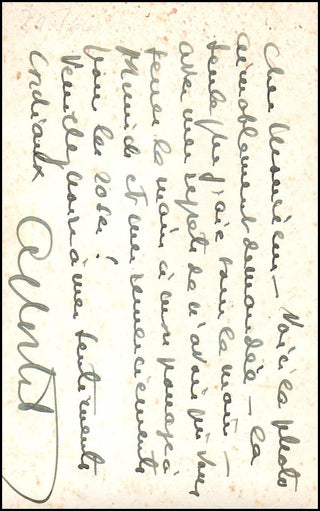 Cher Monsieur — Voici la photo
aimablement demandée — la
seule que j'aie sous la main —
avec mes regrets de n'avoir pu vous
serrer la main à mon passage à
Munich et mes remerciements
pour les roses!
Veuillez croire à mes sentiments
cordiaux